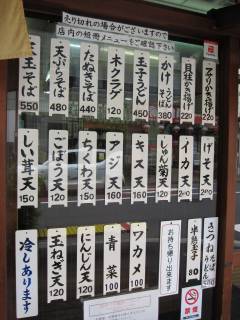 売り切れの場合がございますので
店内の短冊メニューをご確認下さい
アサリかき揚げ
220
貝柱かき揚げ
220
かけ うどん そば
380
玉子 うどん そば
450
木クラゲ
120
たぬきそば
440
天ぷらそば
480
天玉そば
550
げそ天
イカ天
しゅん菊天
120
キス天
160
アジ天
160
ちくわ天
150
ごぼう天
120
しい茸天
150
さつねそば うどん
半熟玉子
80
お持ち帰り出来ます
ワカメ
100
青菜
100
にんじん天
120
玉ねぎ天
120
冷しあります
禁煙